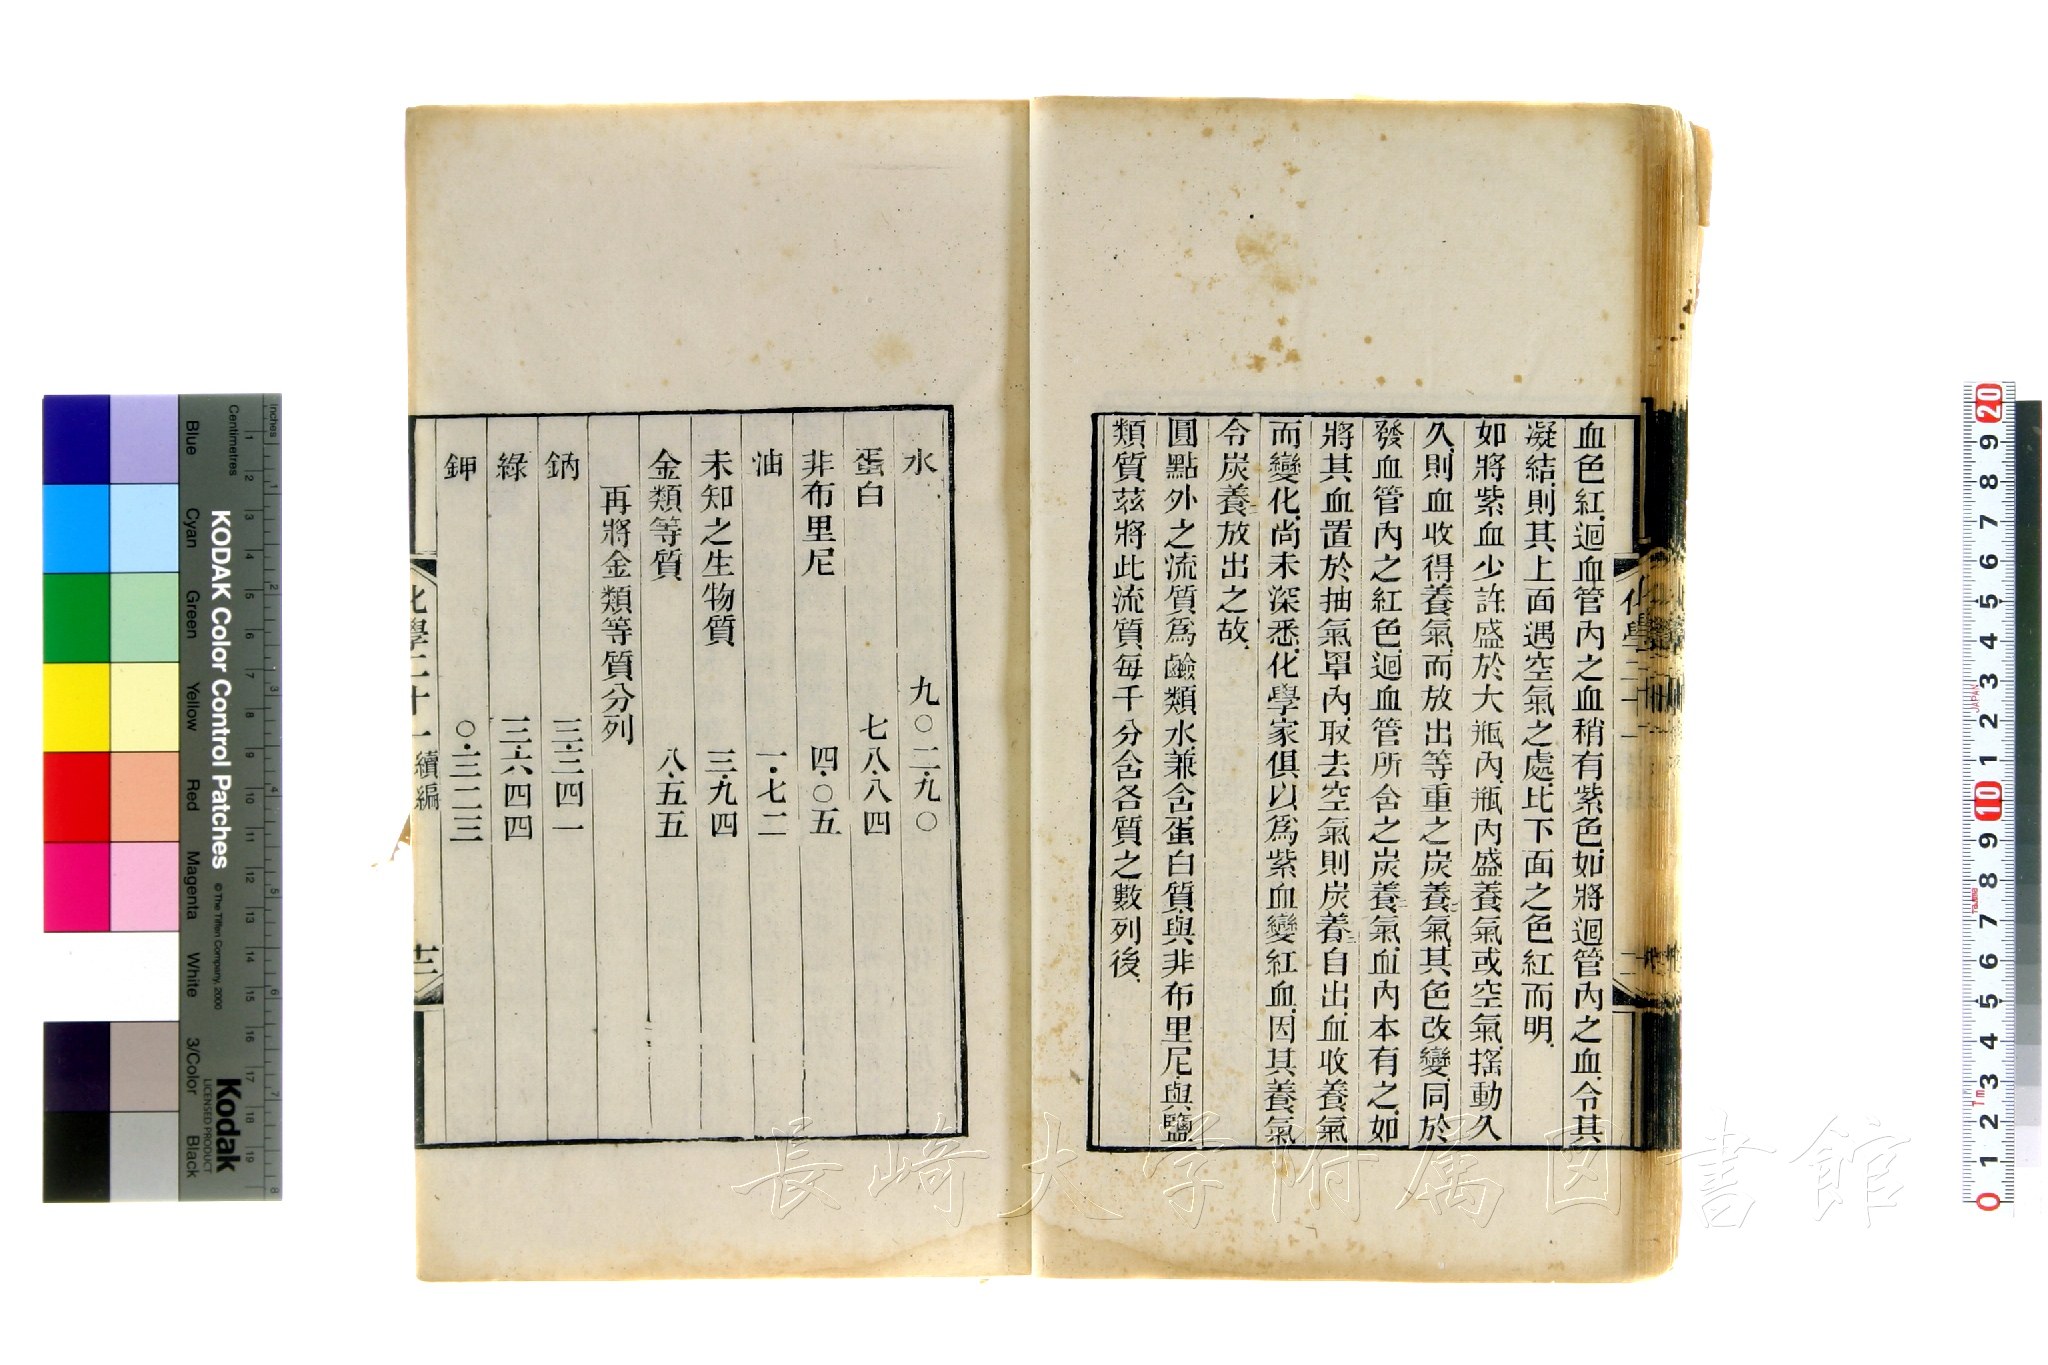 血色紅.迴血管內之血稍有紫色.如將迴管內之血.令其
凝結.則其上面遇空氣之處.比下面之色紅而明.
如將紫血少許.盛於大瓶內.瓶內盛養氣或空氣.搖動久
久.則血收得養氣.而放出等重之炭養氣.其色改變.同於
發血管內之紅色.迴血管所含之炭養氣.血內本有之.如
將其血置於抽氣罩內.取去空氣.則炭養自出.血收養氣
而變化.尚未深悉.化學家俱以爲紫血變紅血.因其養氣
令炭養放出之故.
圓點外之流質爲鹼類水.兼含蛋白質.與非布里尼.與鹽
類質.茲將此流質每千分含各質之數列後.
水 九〇二.九〇
蛋白 七八.八四
非布里尼 四.〇五
油 一.七二
未知之生物質 三.九四
金類等質 八.五五
再將金類等質分列
鈉 三.三四一
綠 三.六四四
鉀 〇.三二三
化學二十一 續編 十二
長崎大学附属図書館
KODAK Color Control Patches
© The Tiffen Company, 2000
Kodak
LICENSED PRODUCT
Blue Cyan Green Yellow Red Magenta White 3/Color Black
Inches 1 2 3 4 5 6 7 8
Centimetres 1 2 3 4 5 6 7 8 9 10 11 12 13 14 15 16 17 18 19
0 1 2 3 4 5 6 7 8 9 10 1 2 3 4 5 6 7 8 9 20
JAPAN